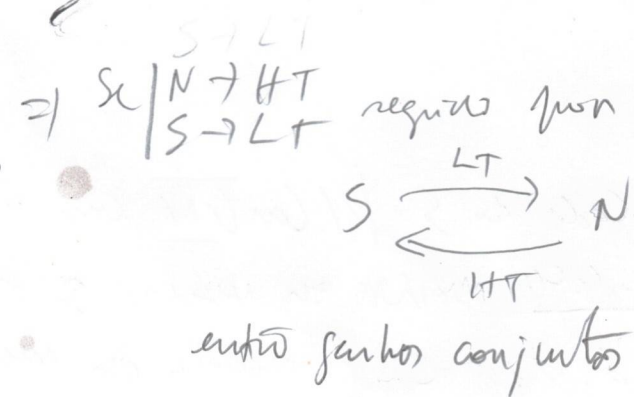 S → LT
=> Se | N → HT
S → LT seguido por
LT
S N
HT
então ganhos conjuntos